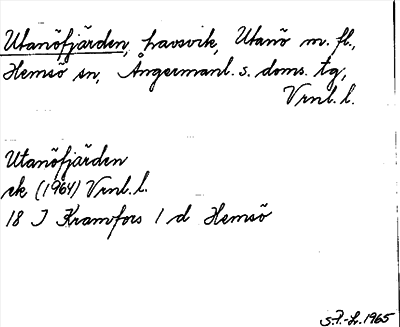 Utanöfjärden, havsvik, Utanö m. fl.,
Hemsö sn, Ångermanl. s. doms. tg,
Vrnl. l.
Utanöfjärden
ek (1964) Vrnl. l.
18 J Kramfors 1 d Hemsö
S.F.-L. 1965